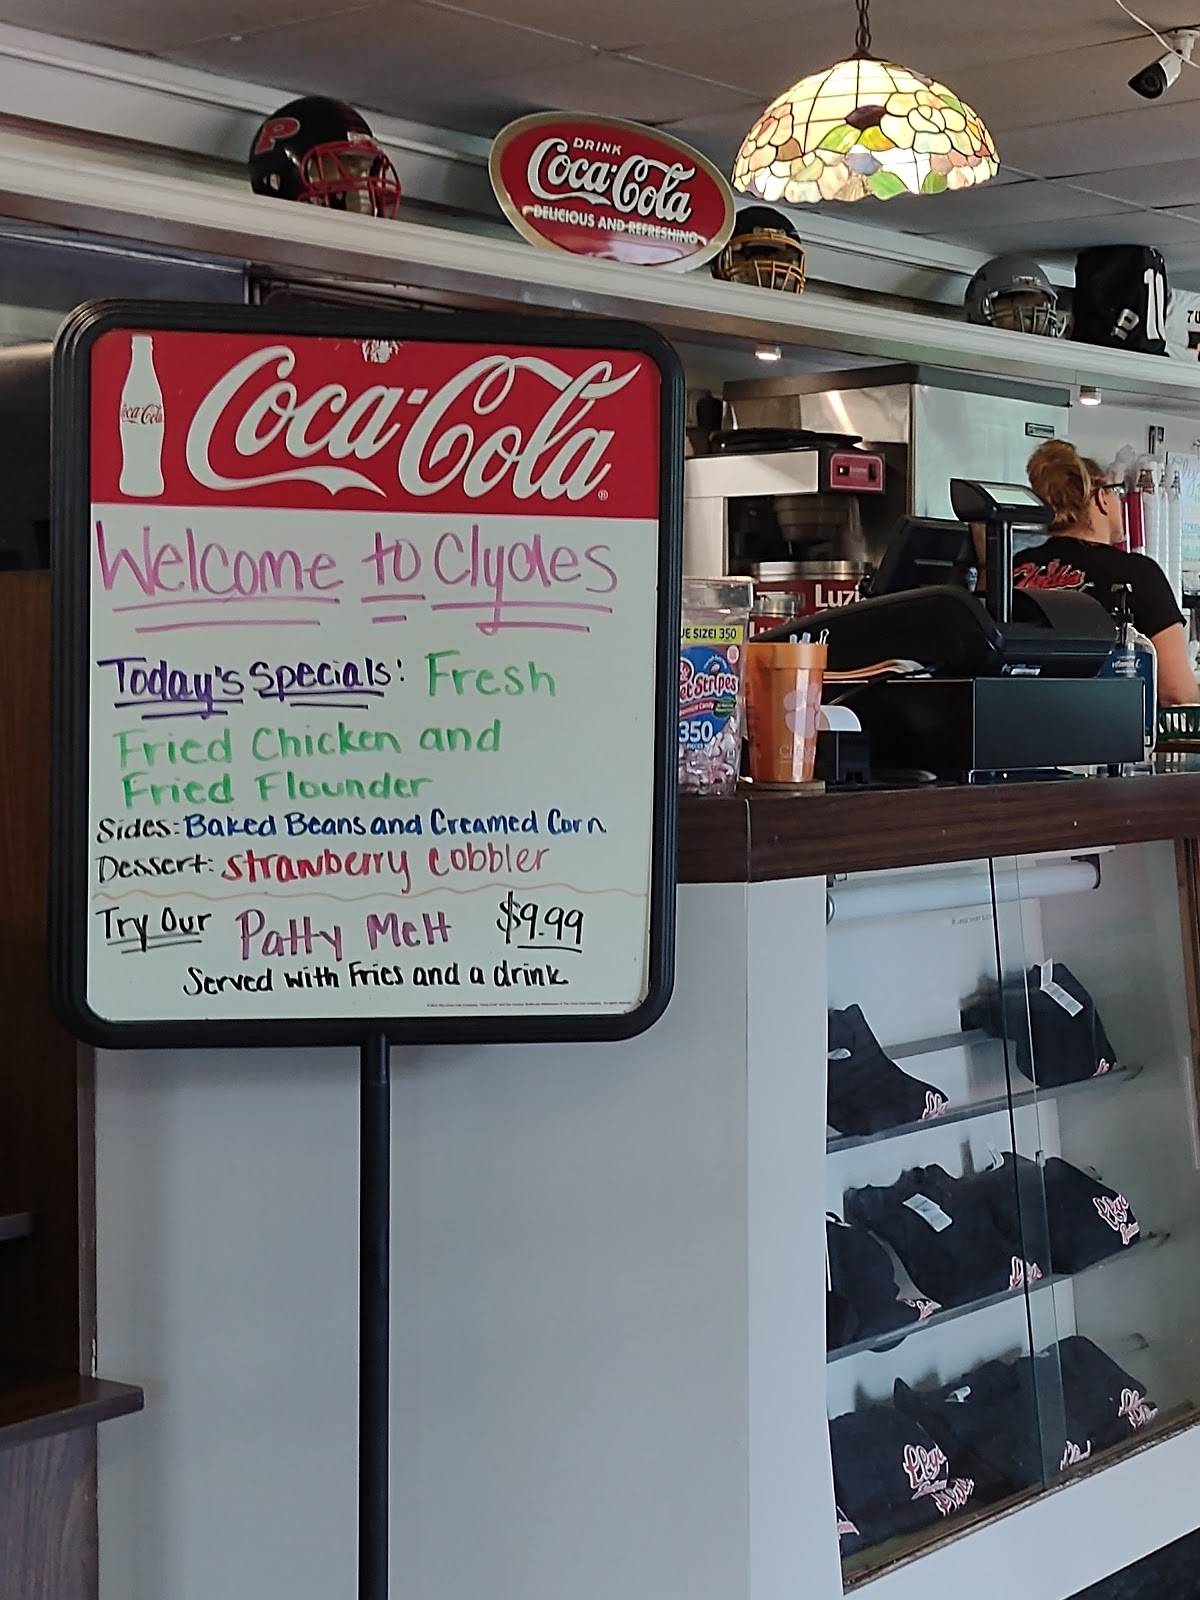 P
DRINK
Coca-Cola
DELICIOUS AND REFRESHING
Coca-Cola
Coca-Cola®
Welcome to Clydes
Today's Specials: Fresh
Fried Chicken and
Fried Flounder
Sides: Baked Beans and Creamed Corn
Dessert: strawberry cobbler
Try Our Patty Melt $9.99
Served with Fries and a drink
UE SIZE! 350
et Stripes
350
Luzi
Clydes